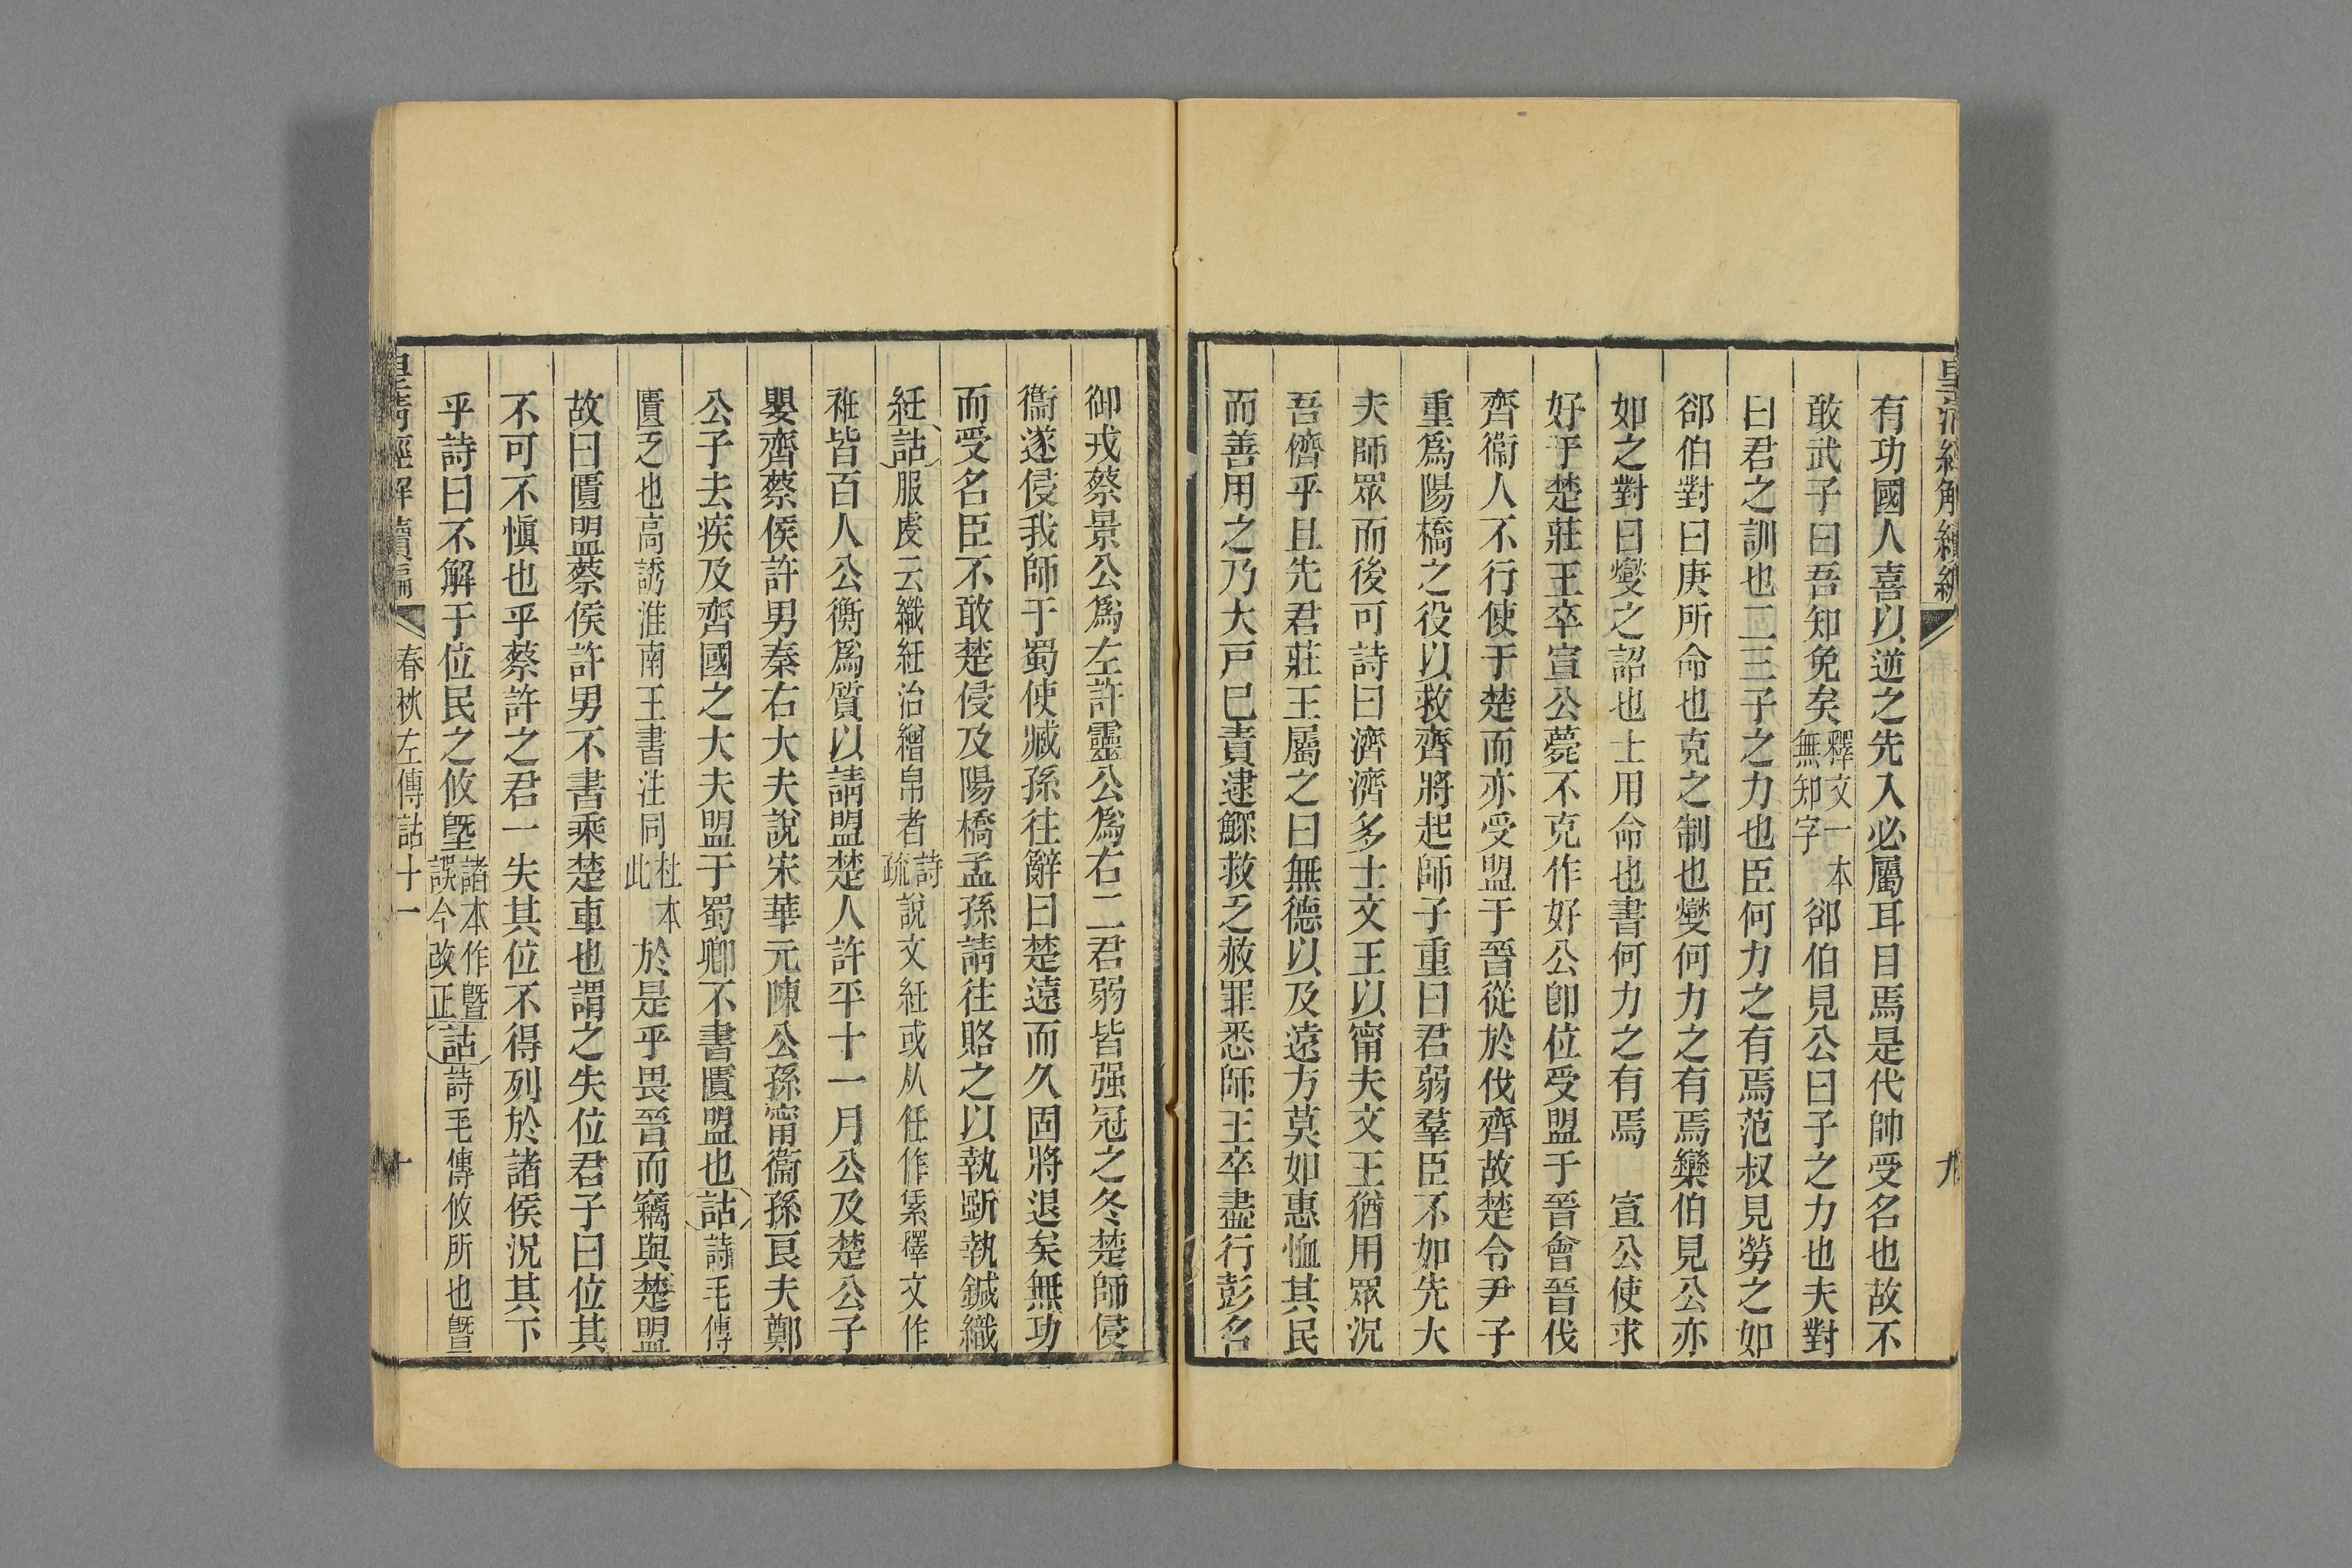 皇清經解續編
九
有功國人喜以逆之先入必屬耳目焉是代帥受名也故不
敢武子曰吾知免矣釋文一本無知字郤伯見公曰子之力也夫對
曰君之訓也二三子之力也臣何力之有焉范叔見勞之如
郤伯對曰庚所命也克之制也燮何力之有焉欒伯見公亦
如之對曰燮之詔也士用命也書何力之有焉 宣公使求
好于楚莊王卒宣公薨不克作好公卽位受盟于晉會晉伐
齊衞人不行使于楚而亦受盟于晉從於伐齊故楚令尹子
重爲陽橋之役以救齊將起師子重曰君弱羣臣不如先大
夫師眾而後可詩曰濟濟多士文王以甯夫文王猶用眾況
吾儕乎且先君莊王屬之曰無德以及遠方莫如惠恤其民
而善用之乃大戸已責逮鰥救乏赦罪悉師王卒盡行彭名
御戎蔡景公爲左許靈公爲右二君弱皆强冠之冬楚師侵
衞遂侵我師于蜀使臧孫往辭曰楚遠而久固將退矣無功
而受名臣不敢楚侵及陽橋孟孫請往賂之以執斲執鍼織
紝詁服虔云織紝治繒帛者詩疏說文紝或从任作䋕釋文作
袵皆百人公衡爲質以請盟楚人許平十一月公及楚公子
嬰齊蔡侯許男秦右大夫說宋華元陳公孫甯衞孫良夫鄭
公子去疾及齊國之大夫盟于蜀卿不書匱盟也詁詩毛傳
匱乏也高誘淮南王書注同杜本此於是乎畏晉而竊與楚盟
故曰匱盟蔡侯許男不書乘楚車也謂之失位君子曰位其
不可不愼也乎蔡許之君一失其位不得列於諸侯況其下
乎詩曰不解于位民之攸塈諸本作曁誤今改正詁詩毛傳攸所也曁
皇清經解續編
春秋左傳詁十一
十